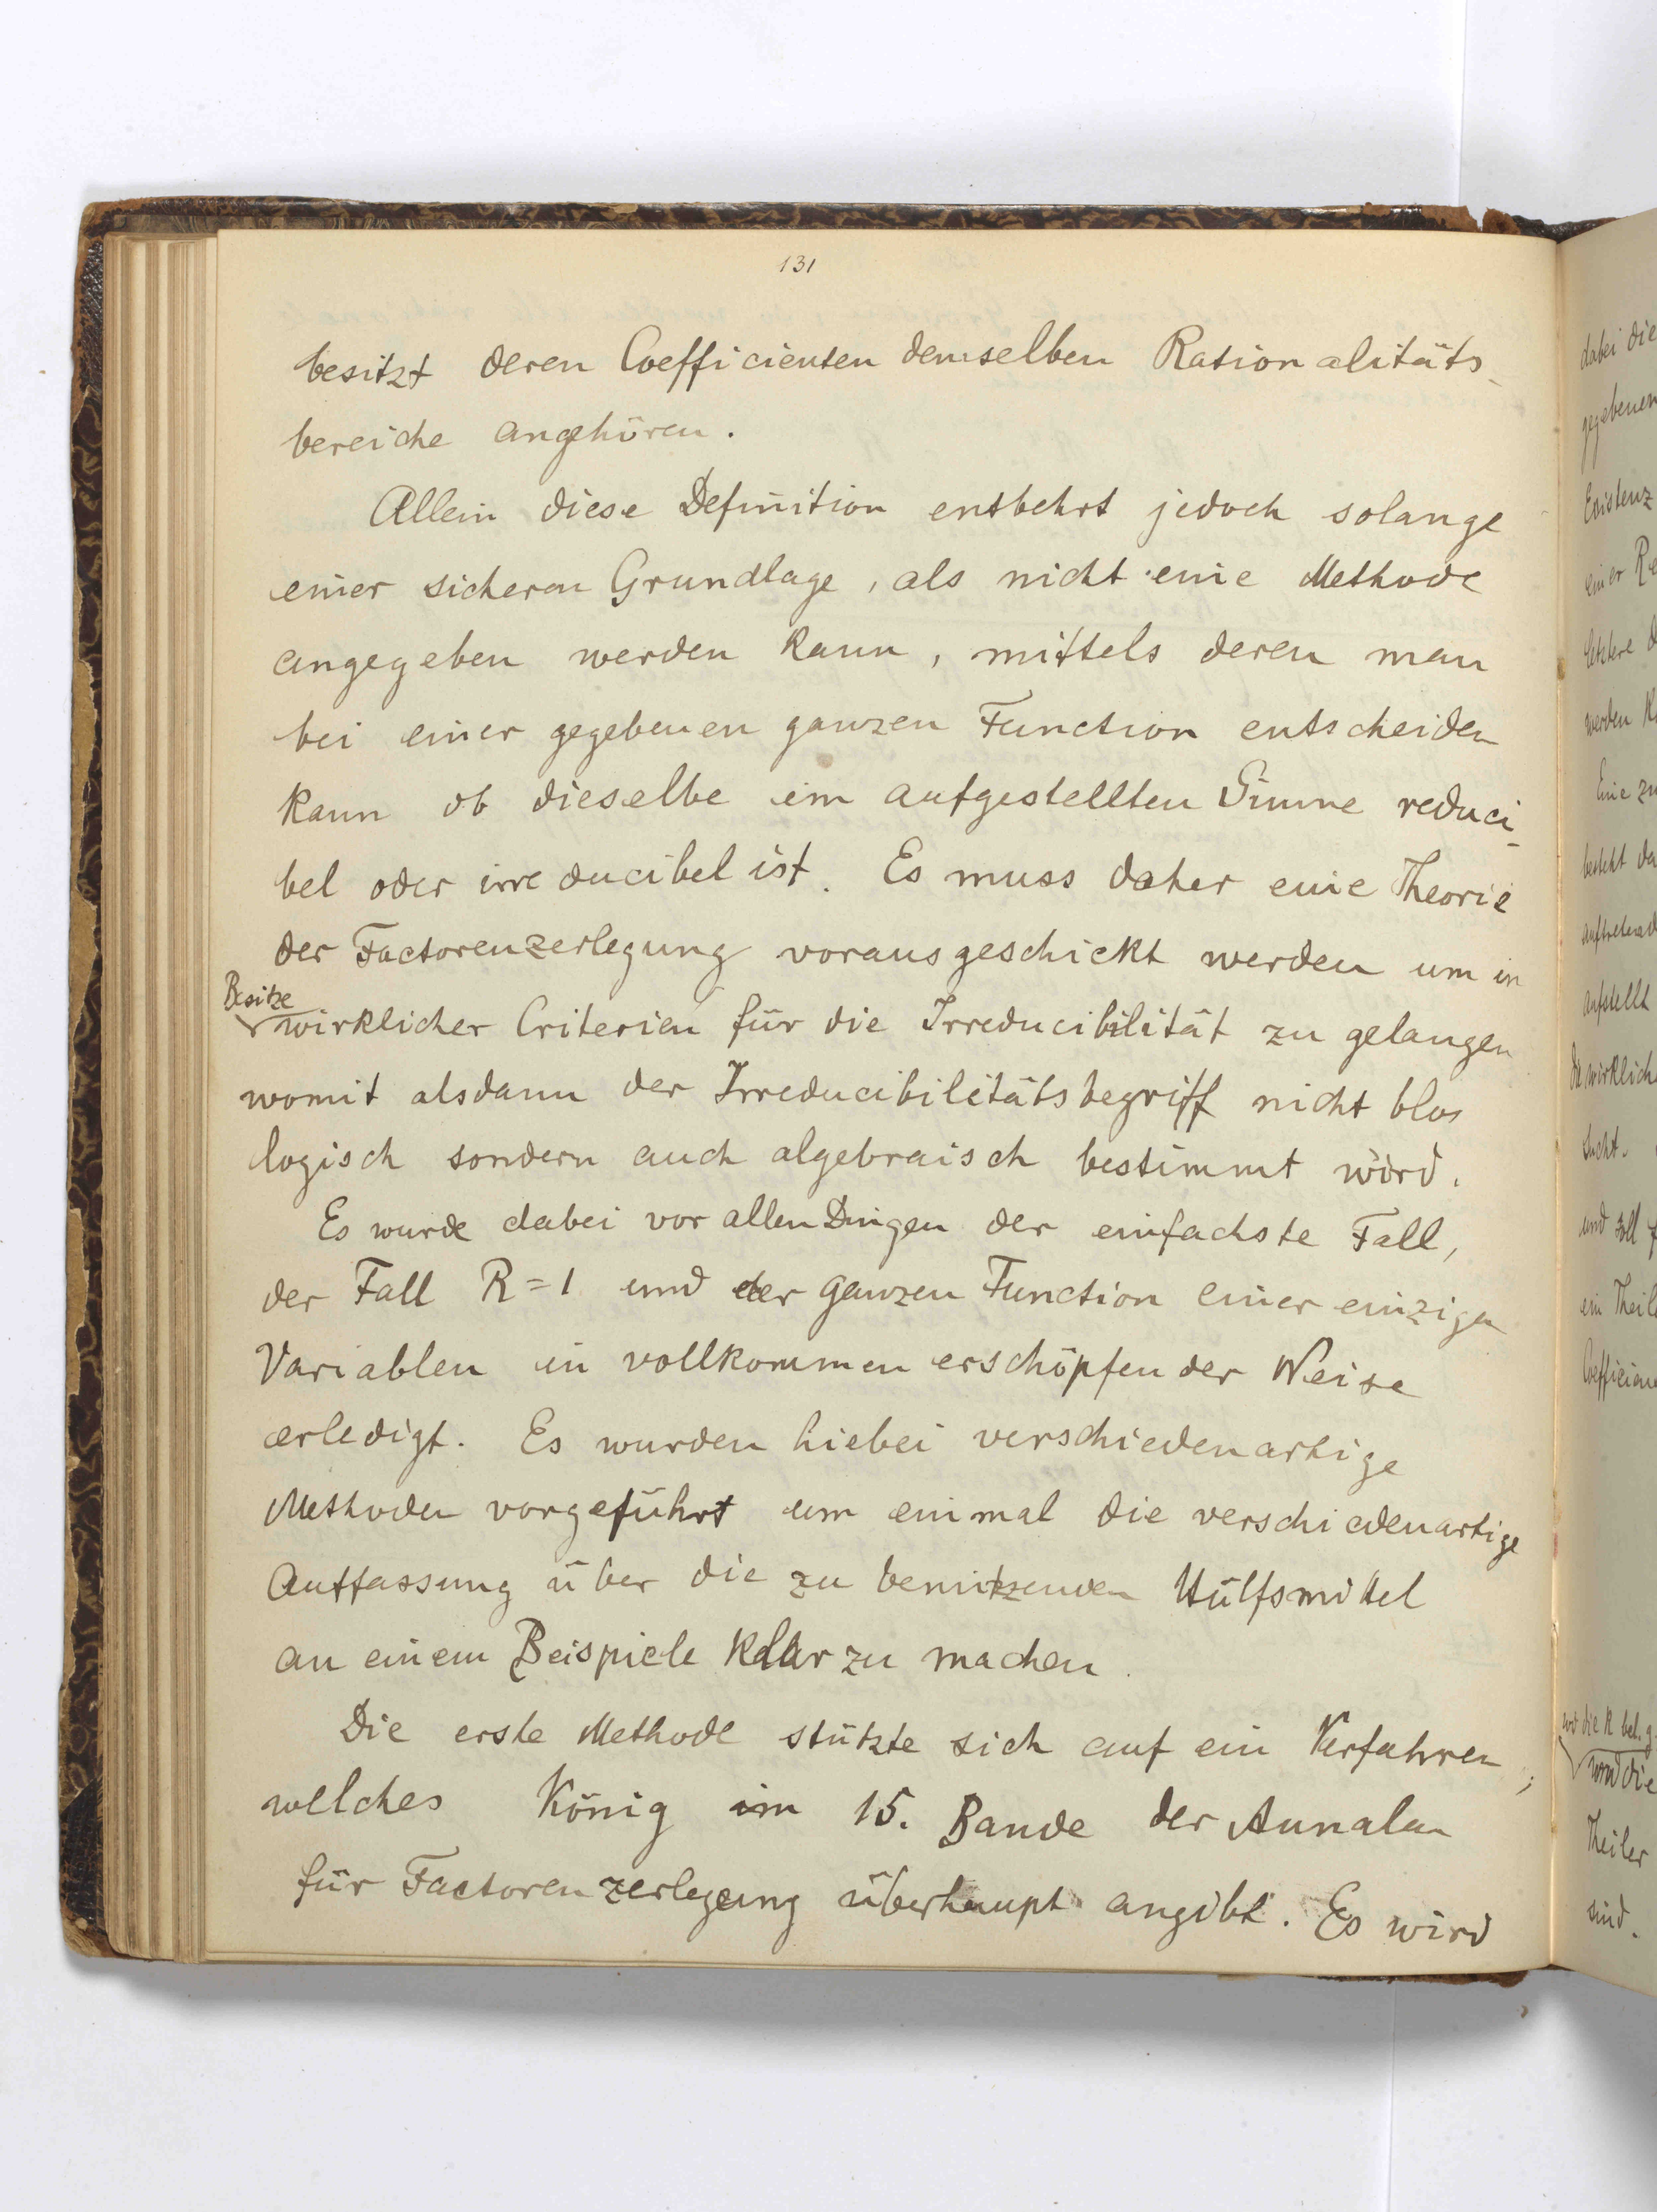 131
besitzt deren Coefficienten demselben Rationalitäts-
bereiche angehören.
Allein diese Definition entbehrt jedoch solange
einer sicheren Grundlage, als nicht eine Methode
angegeben werden kann, mittels deren man
bei einer gegebenen ganzen Function entscheiden
kann ob dieselbe im aufgestellten Sinne reduci-
bel oder irreducibel ist. Es muss daher eine Theorie
der Factorenzerlegung vorausgeschickt werden um in
Besitze
wirklicher Criterien für die Irreducibilität zu gelangen
womit alsdann der Irreducibilitätsbegriff nicht blos
logisch sondern auch algebraisch bestimmt wird.
Es wurde dabei vor allen Dingen der einfachste Fall,
der Fall R=1 und der ganzen Function einer einzigen
Variablen in vollkommen erschöpfender Weise
erledigt. Es wurden hiebei verschiedenartige
Methoden vorgeführt um einmal die verschiedenartige
Auffassung über die zu benützenden Hülfsmittel
an einem Beispiele klar zu machen.
Die erste Methode stützte sich auf ein Verfahren,
welches König im 15. Bande der Annalen
für Factorenzerlegung überhaupt angibt. Es wird
dabei die
gegebenen
Existenz
einer Re
letztere d
werden k
Eine zu
besteht da
auftretend
aufstellt
die wirklich
sucht.
und soll f
ein Theil
Coefficien
wo die R bel. g
und die
Theiler
sind.